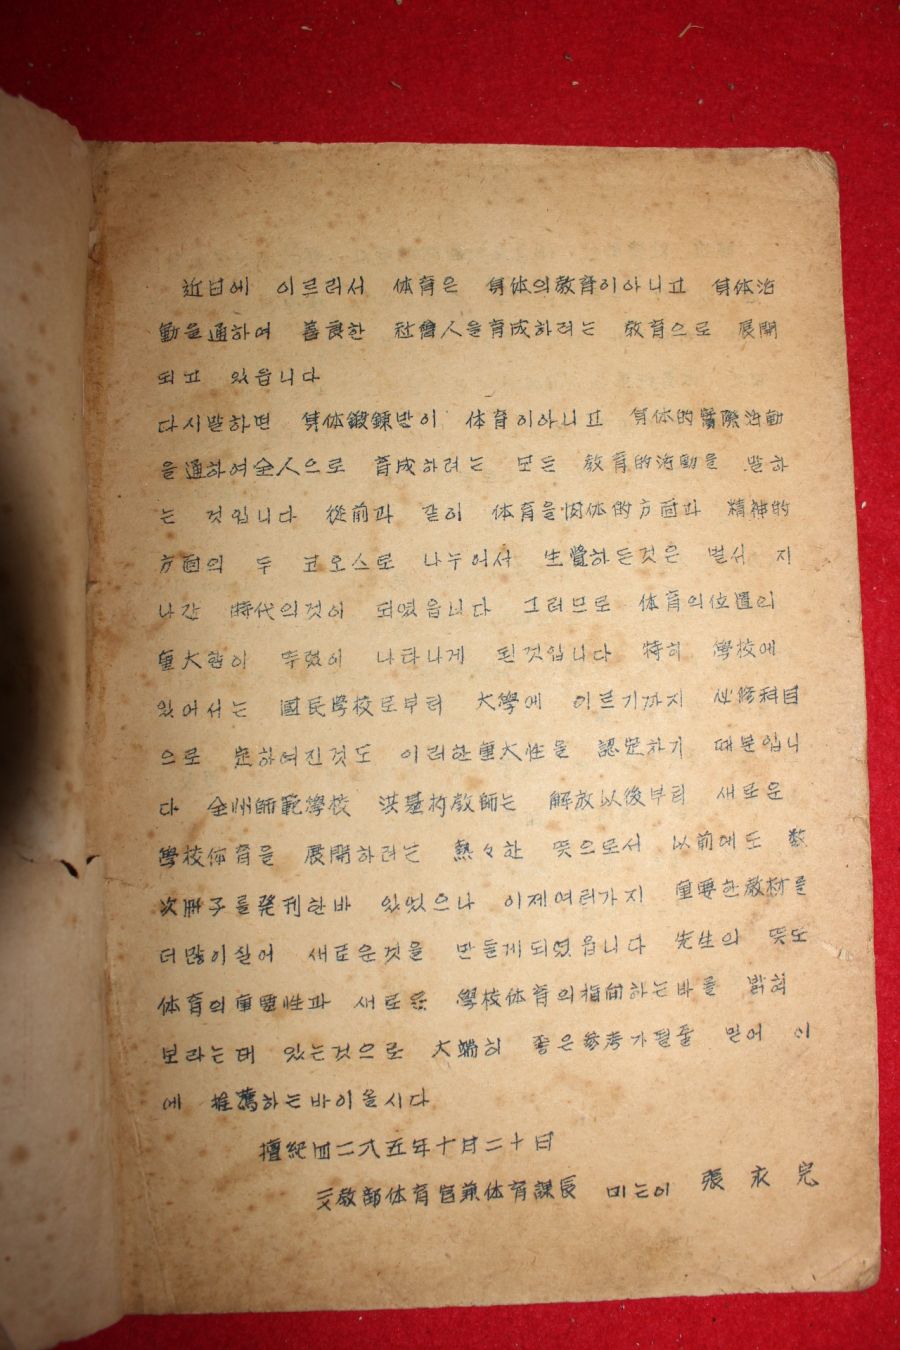 近日에 이르러서 体育은 身体의敎育이아니고 身体活
動을通하여 善良한 社會人을育成하려는 敎育으로 展開
되고 있읍니다
다시말하면 身体鍛鍊만이 体育이아니고 身体的實際活動
을通하여全人으로 育成하려는 모든 敎育的活動을 말하
는 것입니다 從前과 같이 体育을肉体的方面과 精神的
方面의 두 코오스로 나누어서 生覺하든것은 벌서 지
나간 時代의것이 되였읍니다 그러므로 体育의位置의
重大함이 뚜렸이 나타나게 된것입니다 特히 學校에
있어서는 國民學校로부터 大學에 이르기까지 必修科目
으로 定하여진것도 이러한重大性을 認定하기 때문입니
다 全州師範學校 洪 敎師는 解放以後부터 새로운
學校体育을 展開하려는 熱々한 뜻으로서 以前에도 数
次册子를発刊한바 있었으나 이제여러가지 重要한敎材를
더많이실어 새로운것을 만들게되였읍니다 先生의 뜻도
体育의重要性과 새로운 學校体育의指向하는바를 밝혀
보라는데 있는것으로 大端히 좋은参考가될줄 믿어 이
에 推薦하는바이올시다
檀紀四二八五年十月二十日
文敎部体育官兼体育課長 張 完